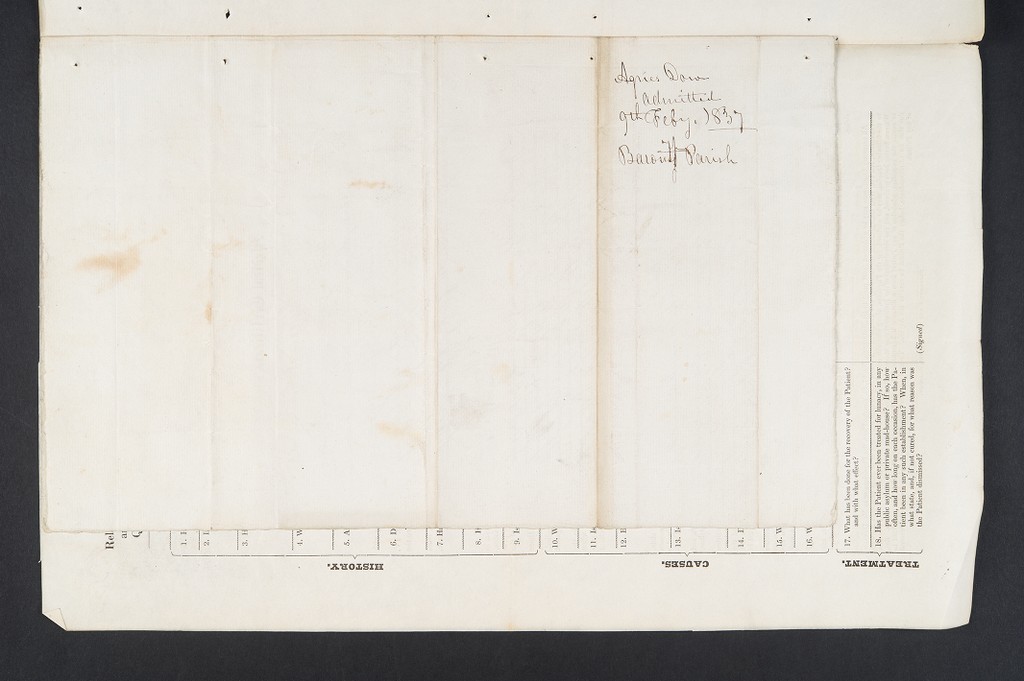 Agnes Down
admitted
9th Feby. 1837
Barony Parish
Rel
Q
HISTORY.
1.
2.
3. H
4. W
5. A
6. D
7. H
8.
9.
CAUSES.
10. W
11.
12.
13.
14.
15. W
16. W
TREATMENT.
17. What has been done for the recovery of the Patient?
and with what effect?
18. Has the Patient ever been treated for lunacy, in any
public asylum or private mad-house? If so, how
often, and how long on each occasion, has the Pa-
tient been in any such establishment? When, in
what state, and, if not cured, for what reason was
the Patient dismissed?
(Signed)